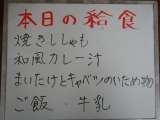 本日の給食
焼きししゃも
和風カレー汁
まいたけとキャベツのいため物
ご飯 牛乳